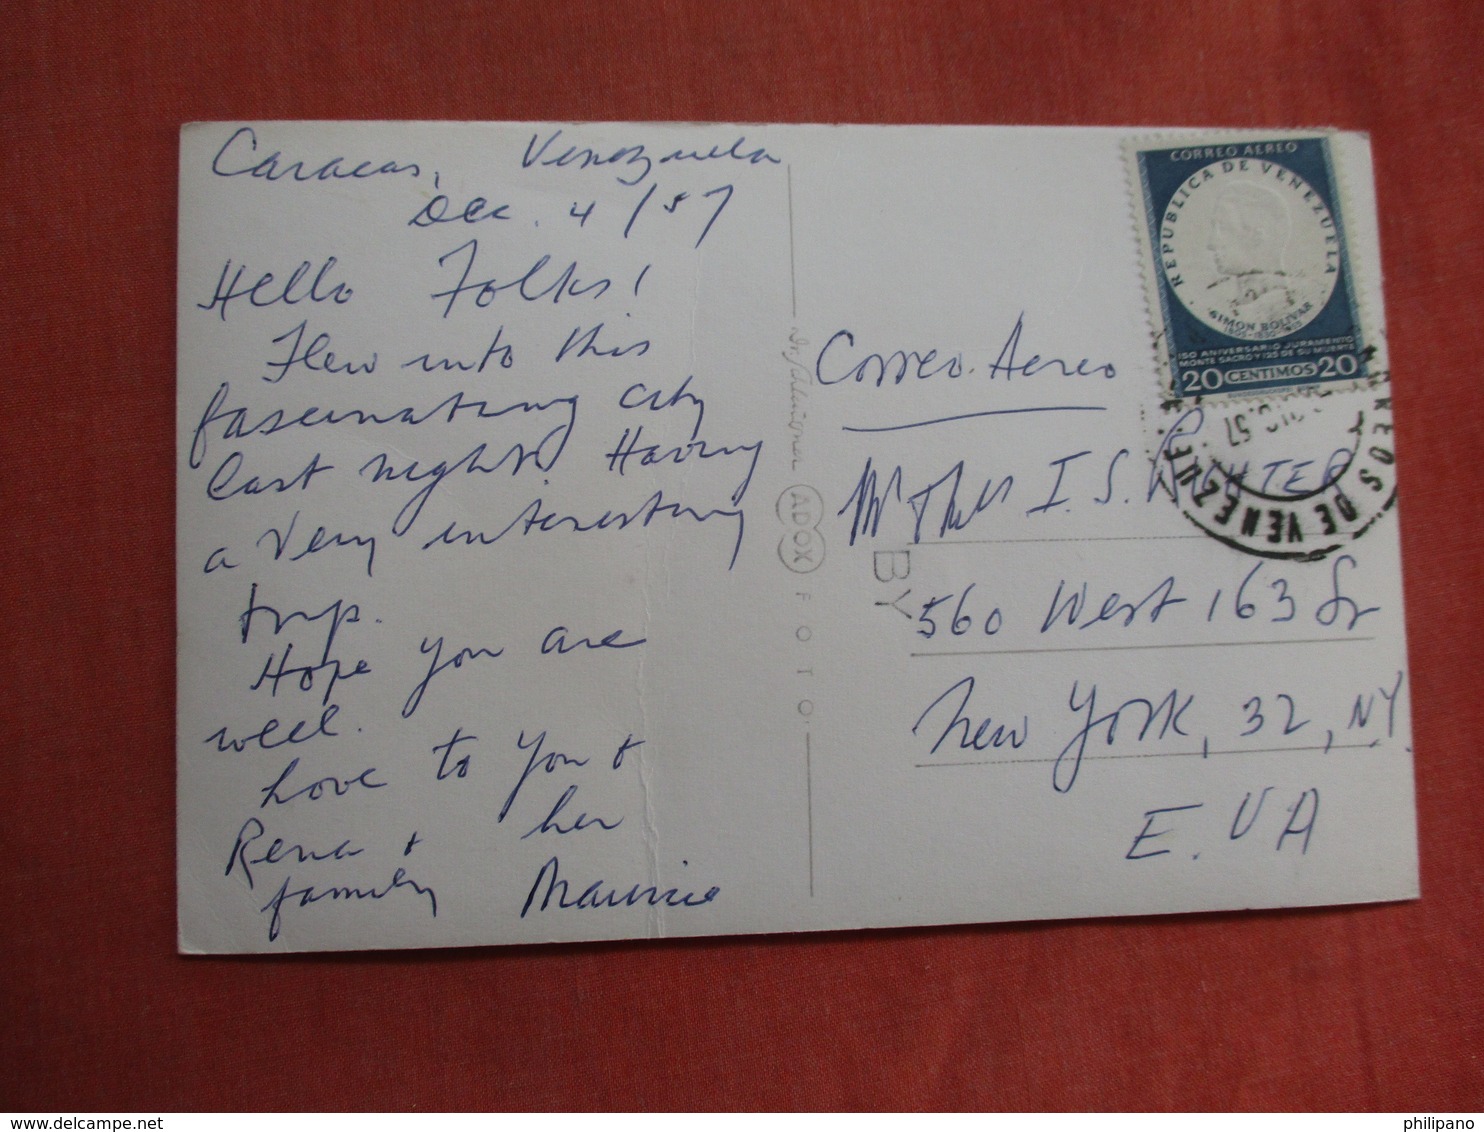 Caracas, Venezuela
Dec. 4/57
Hello Folks!
Flew into this
fascinating city
last night. Having
a very interesting
trip.
Hope you are
well.
Love to you +
Rena + her
family Maurice
ADOX
FOTO
CORREO AEREO
REPUBLICA DE VENEZUELA
SIMON BOLIVAR
150 ANIVERSARIO JURAMENTO
MONTE SACRO Y 125 DE SU MUERTE
20 CENTIMOS 20
CORREOS DE VENEZUELA
57
Correo Aereo
I. S.
BY
560 West 163 St
New York, 32, N.Y.
E. U A
https://www.delcampe.net
philipano